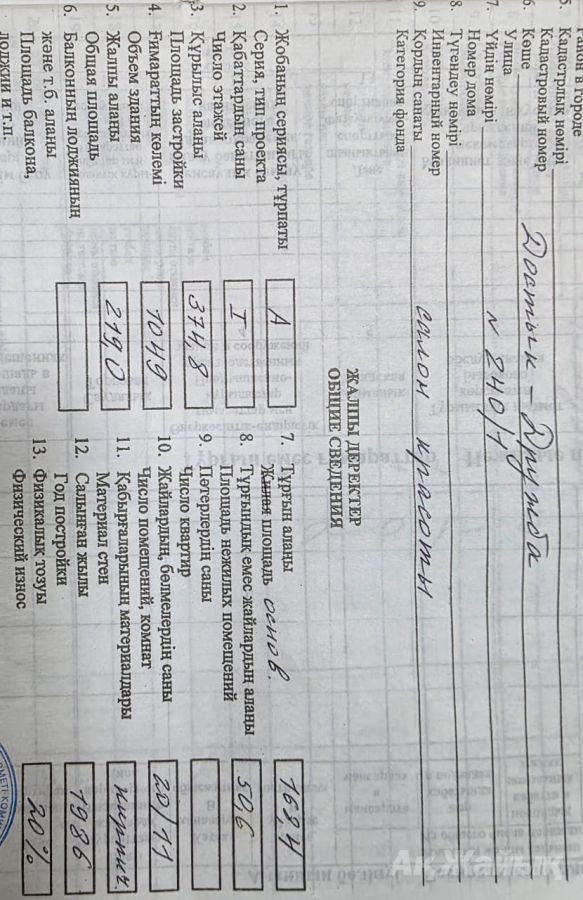 Район в городе
5. Кадастрлық нөмірі
Кадастровый номер
6. Көше Достык - Дружба
Улица
7. Үйдің нөмірі № 240/1
Номер дома
8. Түгендеу нөмірі
Инвентарный номер
9. Қордың санаты салон красоты
Категория фонда
ЖАЛПЫ ДЕРЕКТЕР
ОБЩИЕ СВЕДЕНИЯ
1. Жобаның сериясы, тұрпаты
Серия, тип проекта А
2. Қабаттардың саны
Число этажей I
3. Құрылыс алаңы
Площадь застройки 374,8
4. Ғимараттың көлемі
Объем здания 1049
5. Жалпы алаңы
Общая площадь 219,0
6. Балконның лоджияның
және т.б. алаңы
Площадь балкона,
лоджии и т.п.
7. Тұрғын алаңы
Жилая площадь основ. 168,4
8. Тұрғындық емес жайлардың алаңы
Площадь нежилых помещений 50,6
9. Пәтерлердің саны
Число квартир
10. Жайлардың, бөлмелердің саны
Число помещений, комнат 20/11
11. Қабырғаларының материалдары
Материал стен кирпич.
12. Салынған жылы
Год постройки 1986
13. Физикалық тозуы
Физический износ 20%
Ақ Жайық